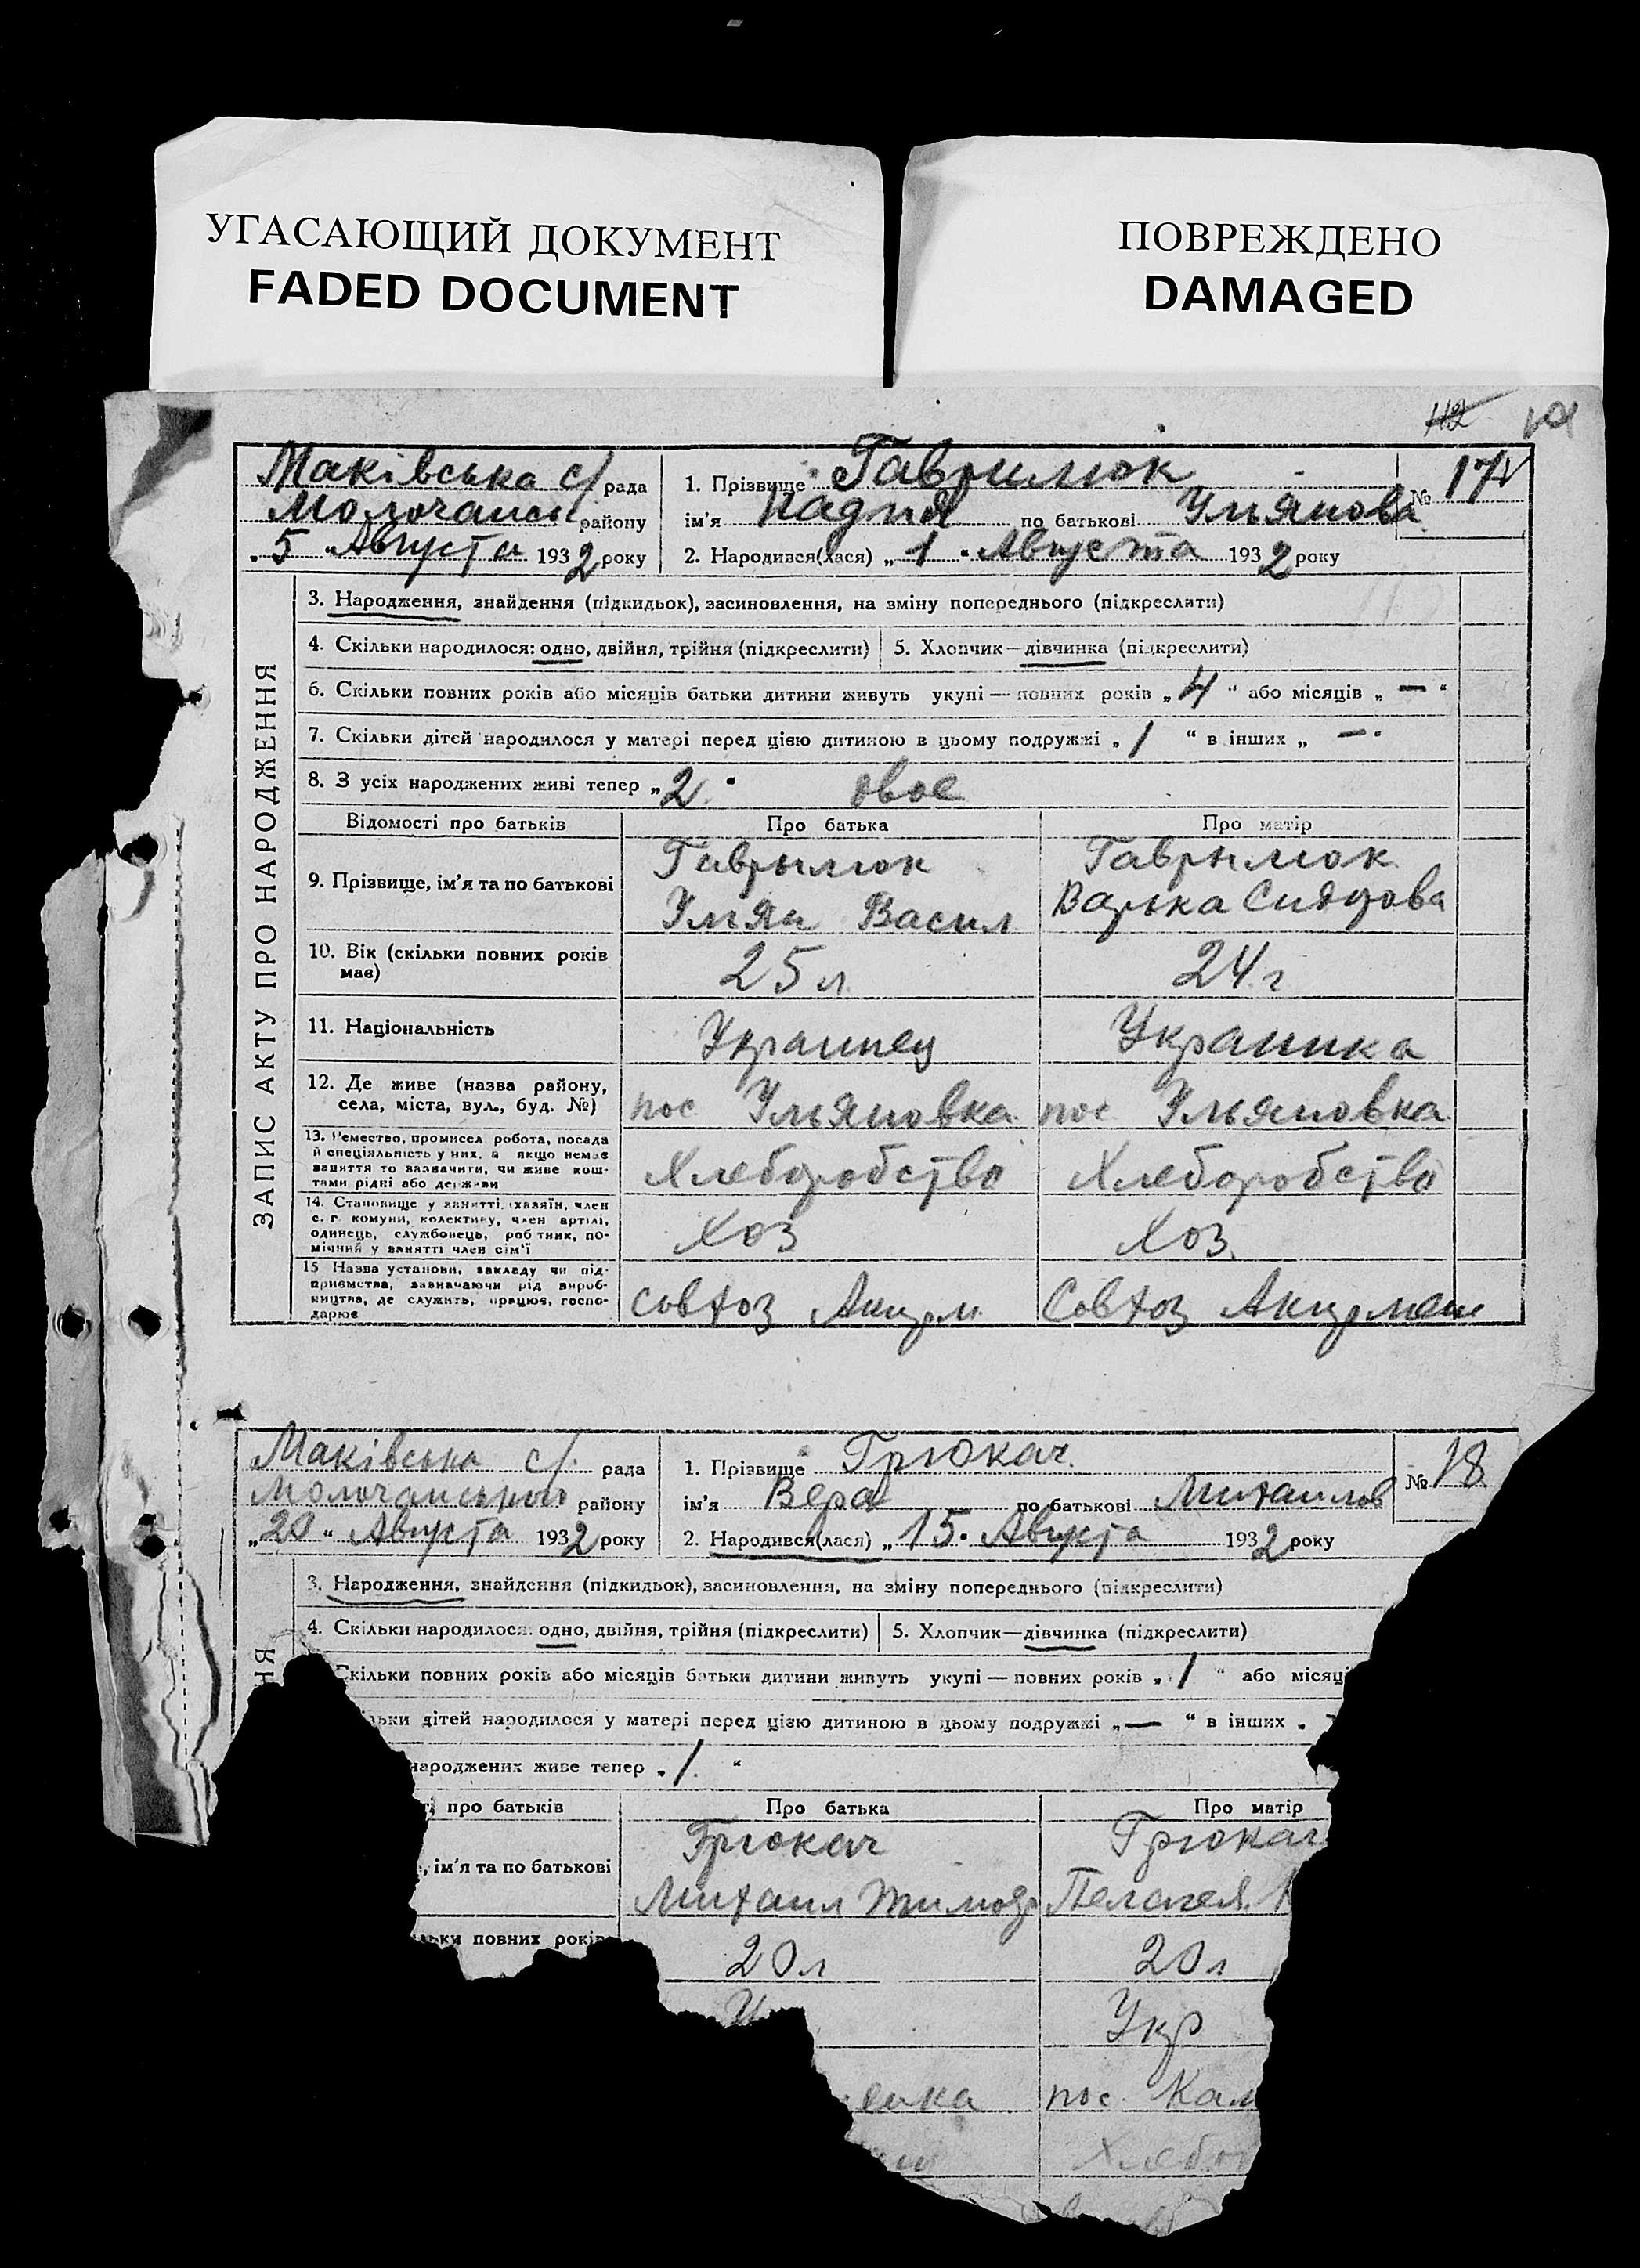 УГАСАЮЩИЙ ДОКУМЕНТ
FADED DOCUMENT
ПОВРЕЖДЕНО
DAMAGED
112
Маківська с/ рада
Молочанськ району
"5" Августа 1932 року
1. Прізвище Гаврилюк
№ 17
ім'я Надия по батькові Ульянова
2. Народився(лася) "1" Августа 1932 року
ЗАПИС АКТУ ПРО НАРОДЖЕННЯ
3. Народження, знайдення (підкидьок), засиновлення, на зміну попереднього (підкреслити)
4. Скільки народилося: одно, двійня, трійня (підкреслити) 5. Хлопчик—дівчинка (підкреслити)
6. Скільки повних років або місяців батьки дитини живуть укупі — повних років „4" або місяців „—"
7. Скільки дітей народилося у матері перед цією дитиною в цьому подружжі „1" в інших „—"
8. З усіх народжених живі тепер „2" двое
Відомості про батьків Про батька Про матір
9. Прізвище, ім'я та по батькові
Гаврылюк
Ульян Васил
Гаврылюк
Варька
10. Вік (скільки повних років має) 25 л 24 г
11. Національність Украинец Украинка
12. Де живе (назва району, села, міста, вул., буд. №) пос Ульяновка пос Ульяновка
13. Ремество, промисел робота, посада
й спеціяльність у них, а якщо немає
заняття то зазначити, чи живе кош-
тами рідні або держави
Хлеборобство Хлеборобство
14. Становище у занятті, хазяїн, член
с. г. комуни, колективу, член артілі,
одинець, службовець, робітник, по-
мічний у занятті член сім'ї
Хоз Хоз
15 Назва установи, закладу чи під-
приємства, зазначаючи рід вироб-
ництва, де служить, працює, госпо-
дарює
Совхоз Акерм Совхоз Акермен
Маківська с/ рада
Молочанського району
„20" Августа 1932 року
1. Прізвище Грюкач
№ 18
ім'я Вера по батькові Михаилов
2. Народився(лася) „15" Августа 1932 року
НЯ
3. Народження, знайдення (підкидьок), засиновлення, на зміну попереднього (підкреслити)
4. Скільки народилося: одно, двійня, трійня (підкреслити) 5. Хлопчик—дівчинка (підкреслити)
Скільки повних років або місяців батьки дитини живуть укупі — повних років „1" або місяці
льки дітей народилося у матері перед цією дитиною в цьому подружжі „—" в інших
народжених живе тепер „1"
ті про батьків Про батька Про матір
, ім'я та по батькові
Грюкач
Михаил Тимоф
Грюкач
Пелагея
льки повних років 20 л 20 л
У Укр
енка пос. Кам
Хлебо